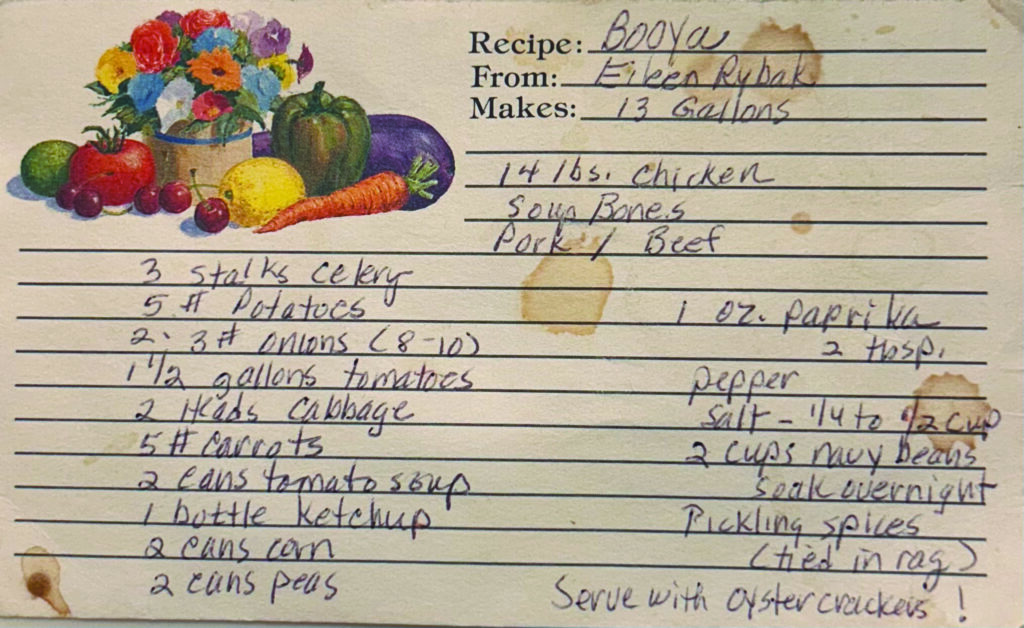 Recipe: Booya
From: Eileen Rybak
Makes: 13 Gallons
14 lbs. Chicken
Soup Bones
Pork / Beef
3 stalks celery
5 # Potatoes
2-3# onions (8-10)
1 1/2 gallons tomatoes
2 Heads Cabbage
5 # carrots
2 cans tomato soup
1 bottle Ketchup
2 cans corn
2 cans peas
1 oz. paprika
2 tbsp.
pepper
Salt - 1/4 to 1/2 cup
2 cups navy beans
soak overnight
Pickling spices
(tied in rag)
Serve with oyster crackers !